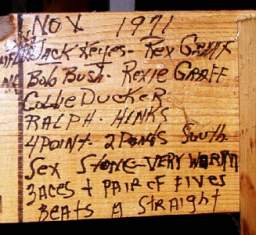 NOV 1971
Jack Keyes - Rex Graff
Bob Bush - Rexie GRAFF
DUCKER
RALPH - HINKS
4 POINT - 2 South
Sex Stone - VERY WORM
3 ACES + PAIR OF FIVES
BEATS A STRAIGHT